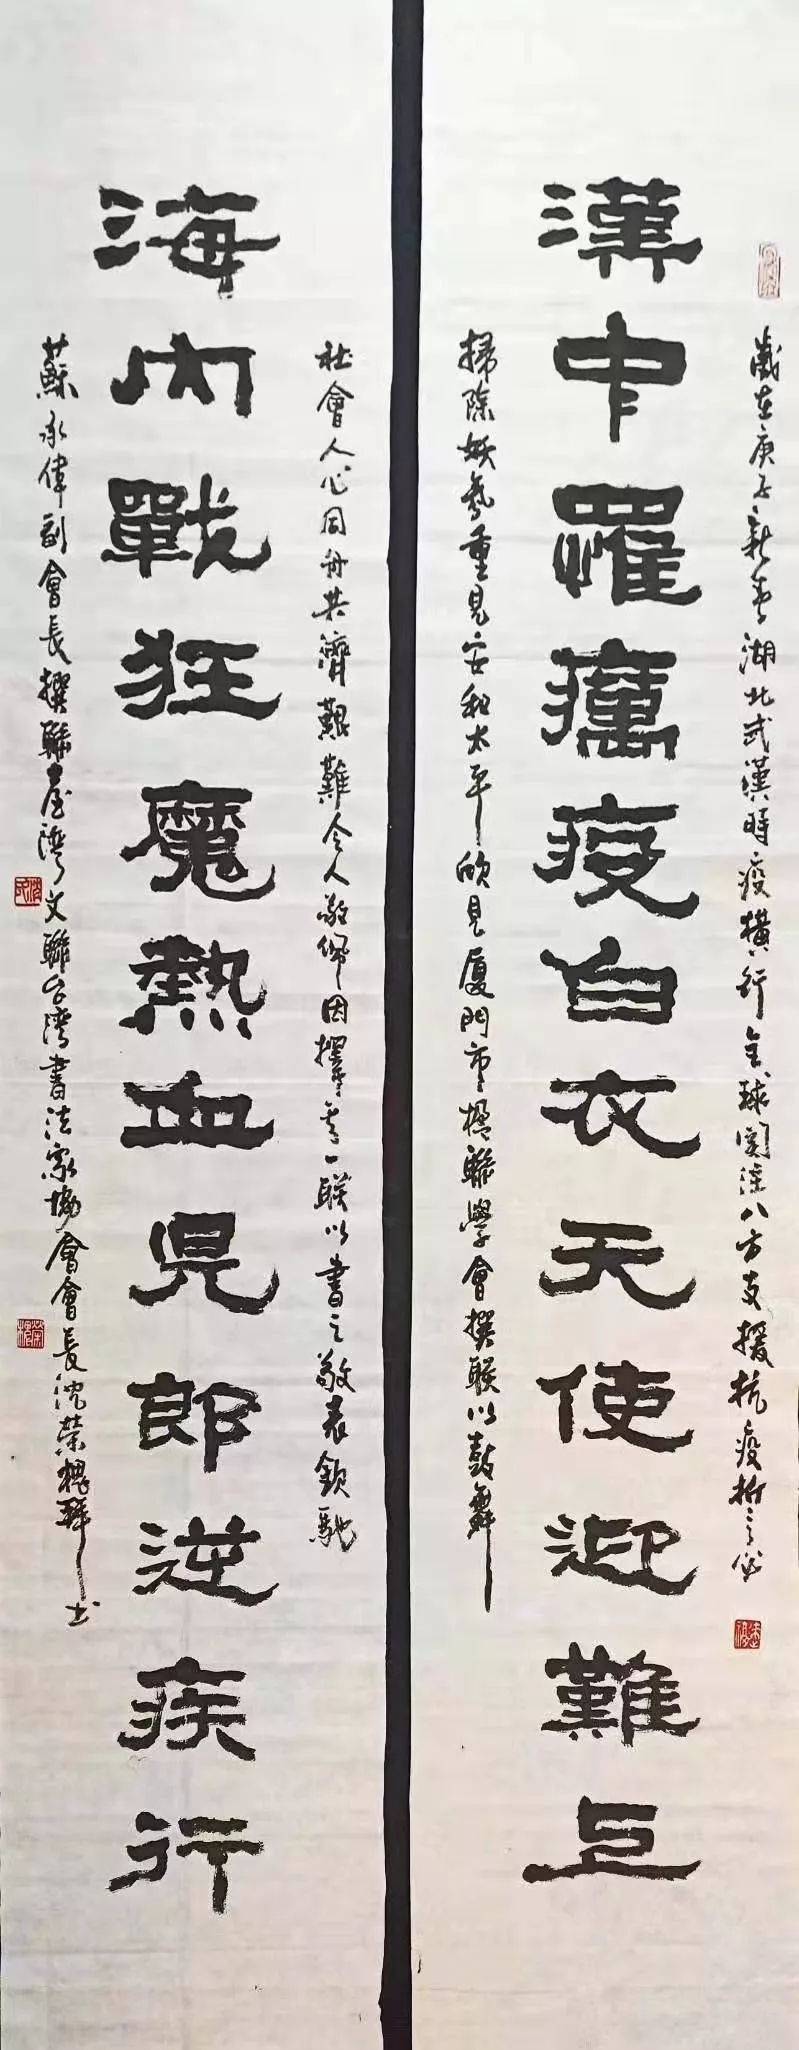 歲在庚子新春湖北武漢時疫橫行全球關注八方支援抗疫
漢中罹癘疫白衣天使迎難上
掃除妖氛重見安和太平欣見廈門市楹聯學會撰聯以鼓舞
社會人心同舟共濟艱難令人敬佩因擇其一联以書之敬表欽馳
海內戰狂魔熱血兒郎逆疾行
蘇永偉副會長撰聯臺灣文聯台灣書法家協會會長沈榮槐拜书